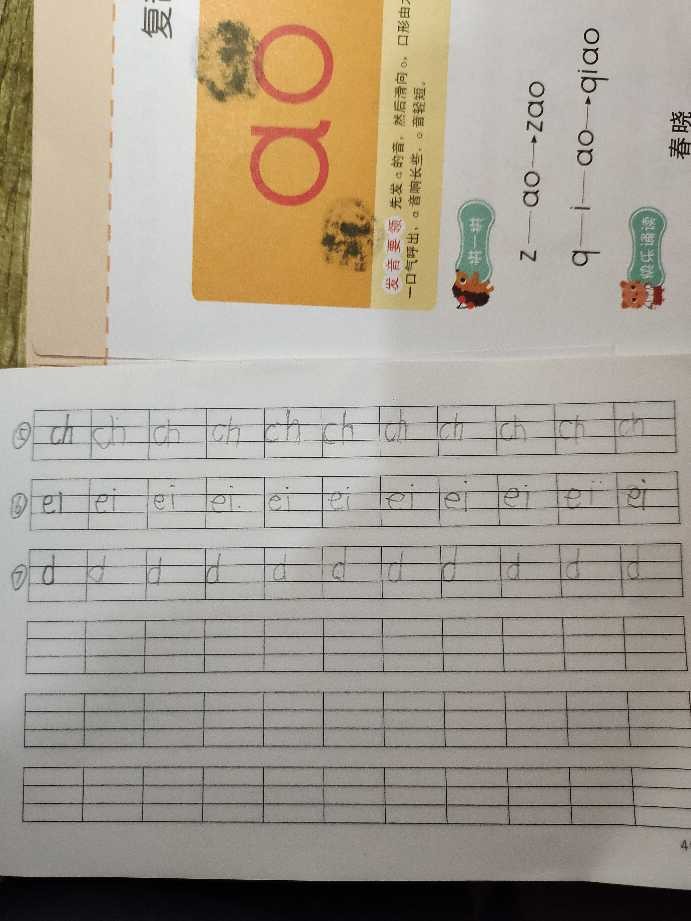 复
ao
发音要领 先发ɑ的音，然后滑向o，口形由
一口气呼出，ɑ音响长些，o音轻短。
拼一拼
z—ao→zao
q—i—ao→qiao
快乐诵读
春晓
⑤ ch ch ch ch ch ch ch ch ch ch ch
⑥ ei ei ei ei ei ei ei ei ei ei ei
⑦ d d d d d d d d d d d